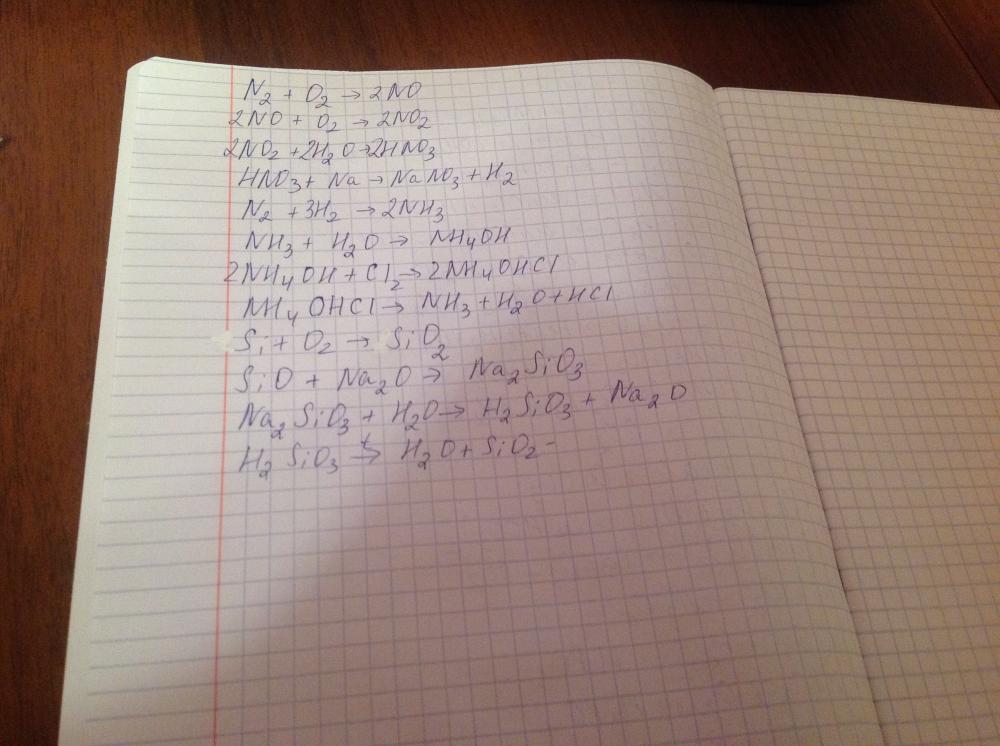 N₂ + O₂ → 2NO
2NO + O₂ → 2NO₂
2NO₂ + 2H₂O → 2HNO₃
HNO₃ + Na → NaNO₃ + H₂
N₂ + 3H₂ → 2NH₃
NH₃ + H₂O → NH₄OH
2NH₄OH + Cl₂ → 2NH₄OHCl
NH₄OHCl → NH₃ + H₂O + HCl
Si + O₂ → SiO₂
SiO + Na₂O → Na₂SiO₃
Na₂SiO₃ + H₂O → H₂SiO₃ + Na₂O
H₂SiO₃ →ᵗ H₂O + SiO₂ -